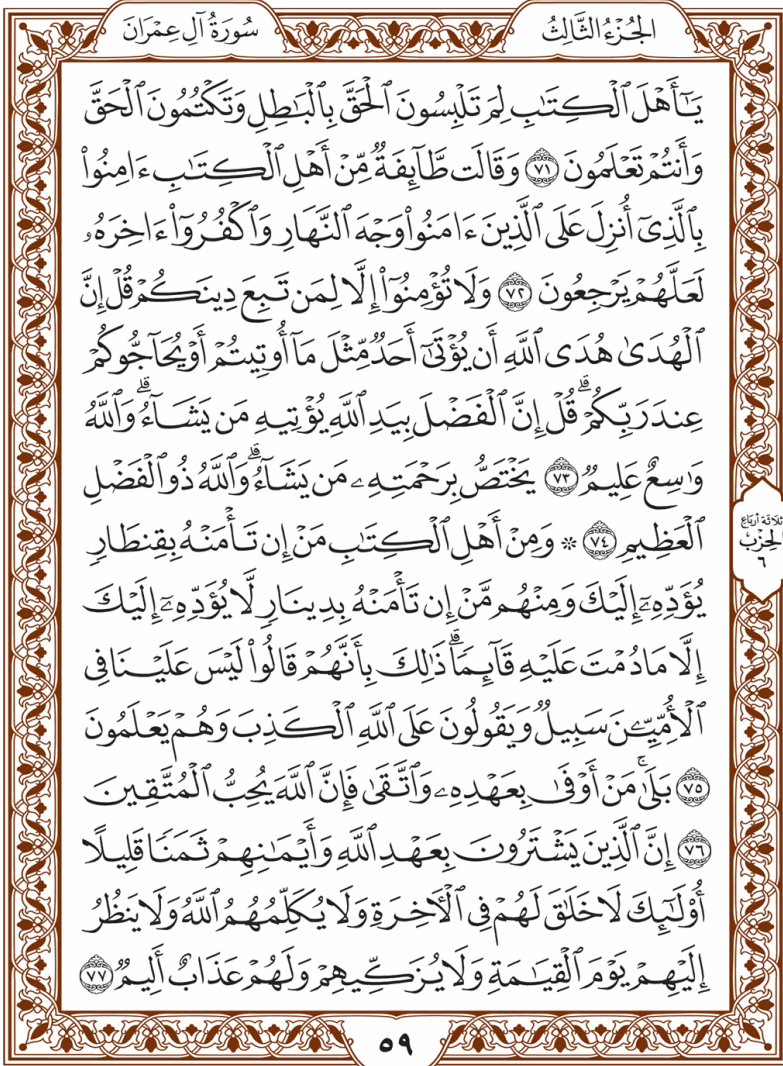 الجُزْءُ الثَّالِثُ
سُورَةُ آلِ عِمْرَانَ
يَـٰٓأَهْلَ ٱلْكِتَـٰبِ لِمَ تَلْبِسُونَ ٱلْحَقَّ بِٱلْبَـٰطِلِ وَتَكْتُمُونَ ٱلْحَقَّ
وَأَنتُمْ تَعْلَمُونَ ٧١ وَقَالَت طَّآئِفَةٌ مِّنْ أَهْلِ ٱلْكِتَـٰبِ ءَامِنُوا۟
بِٱلَّذِىٓ أُنزِلَ عَلَى ٱلَّذِينَ ءَامَنُوا۟ وَجْهَ ٱلنَّهَارِ وَٱكْفُرُوٓا۟ ءَاخِرَهُۥ
لَعَلَّهُمْ يَرْجِعُونَ ٧٢ وَلَا تُؤْمِنُوٓا۟ إِلَّا لِمَن تَبِعَ دِينَكُمْ قُلْ إِنَّ
ٱلْهُدَىٰ هُدَى ٱللَّهِ أَن يُؤْتَىٰٓ أَحَدٌ مِّثْلَ مَآ أُوتِيتُمْ أَوْ يُحَآجُّوكُمْ
عِندَ رَبِّكُمْ ۗ قُلْ إِنَّ ٱلْفَضْلَ بِيَدِ ٱللَّهِ يُؤْتِيهِ مَن يَشَآءُ ۗ وَٱللَّهُ
وَٰسِعٌ عَلِيمٌ ٧٣ يَخْتَصُّ بِرَحْمَتِهِۦ مَن يَشَآءُ ۗ وَٱللَّهُ ذُو ٱلْفَضْلِ
ٱلْعَظِيمِ ٧٤ * وَمِنْ أَهْلِ ٱلْكِتَـٰبِ مَنْ إِن تَأْمَنْهُ بِقِنطَارٍ
يُؤَدِّهِۦٓ إِلَيْكَ وَمِنْهُم مَّنْ إِن تَأْمَنْهُ بِدِينَارٍ لَّا يُؤَدِّهِۦٓ إِلَيْكَ
إِلَّا مَا دُمْتَ عَلَيْهِ قَآئِمًا ۗ ذَٰلِكَ بِأَنَّهُمْ قَالُوا۟ لَيْسَ عَلَيْنَا فِى
ٱلْأُمِّيِّـۧنَ سَبِيلٌ وَيَقُولُونَ عَلَى ٱللَّهِ ٱلْكَذِبَ وَهُمْ يَعْلَمُونَ
٧٥ بَلَىٰ ۚ مَنْ أَوْفَىٰ بِعَهْدِهِۦ وَٱتَّقَىٰ فَإِنَّ ٱللَّهَ يُحِبُّ ٱلْمُتَّقِينَ
٧٦ إِنَّ ٱلَّذِينَ يَشْتَرُونَ بِعَهْدِ ٱللَّهِ وَأَيْمَـٰنِهِمْ ثَمَنًا قَلِيلًا
أُو۟لَـٰٓئِكَ لَا خَلَـٰقَ لَهُمْ فِى ٱلْـَٔاخِرَةِ وَلَا يُكَلِّمُهُمُ ٱللَّهُ وَلَا يَنظُرُ
إِلَيْهِمْ يَوْمَ ٱلْقِيَـٰمَةِ وَلَا يُزَكِّيهِمْ وَلَهُمْ عَذَابٌ أَلِيمٌ ٧٧
ثلاثة أرباع
الحزب
٦
٥٩